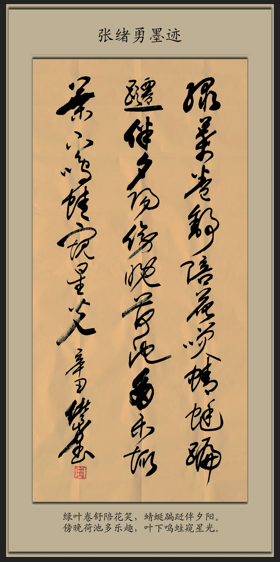 张绪勇墨迹
绿葉卷舒陪花笑蜻蜓蹁
躚伴夕阳傍晚荷池多乐趣
葉下鸣蛙窥星光 辛丑 绪勇书
绿叶卷舒陪花笑，蜻蜓蹁跹伴夕阳。
傍晚荷池多乐趣，叶下鸣蛙窥星光。